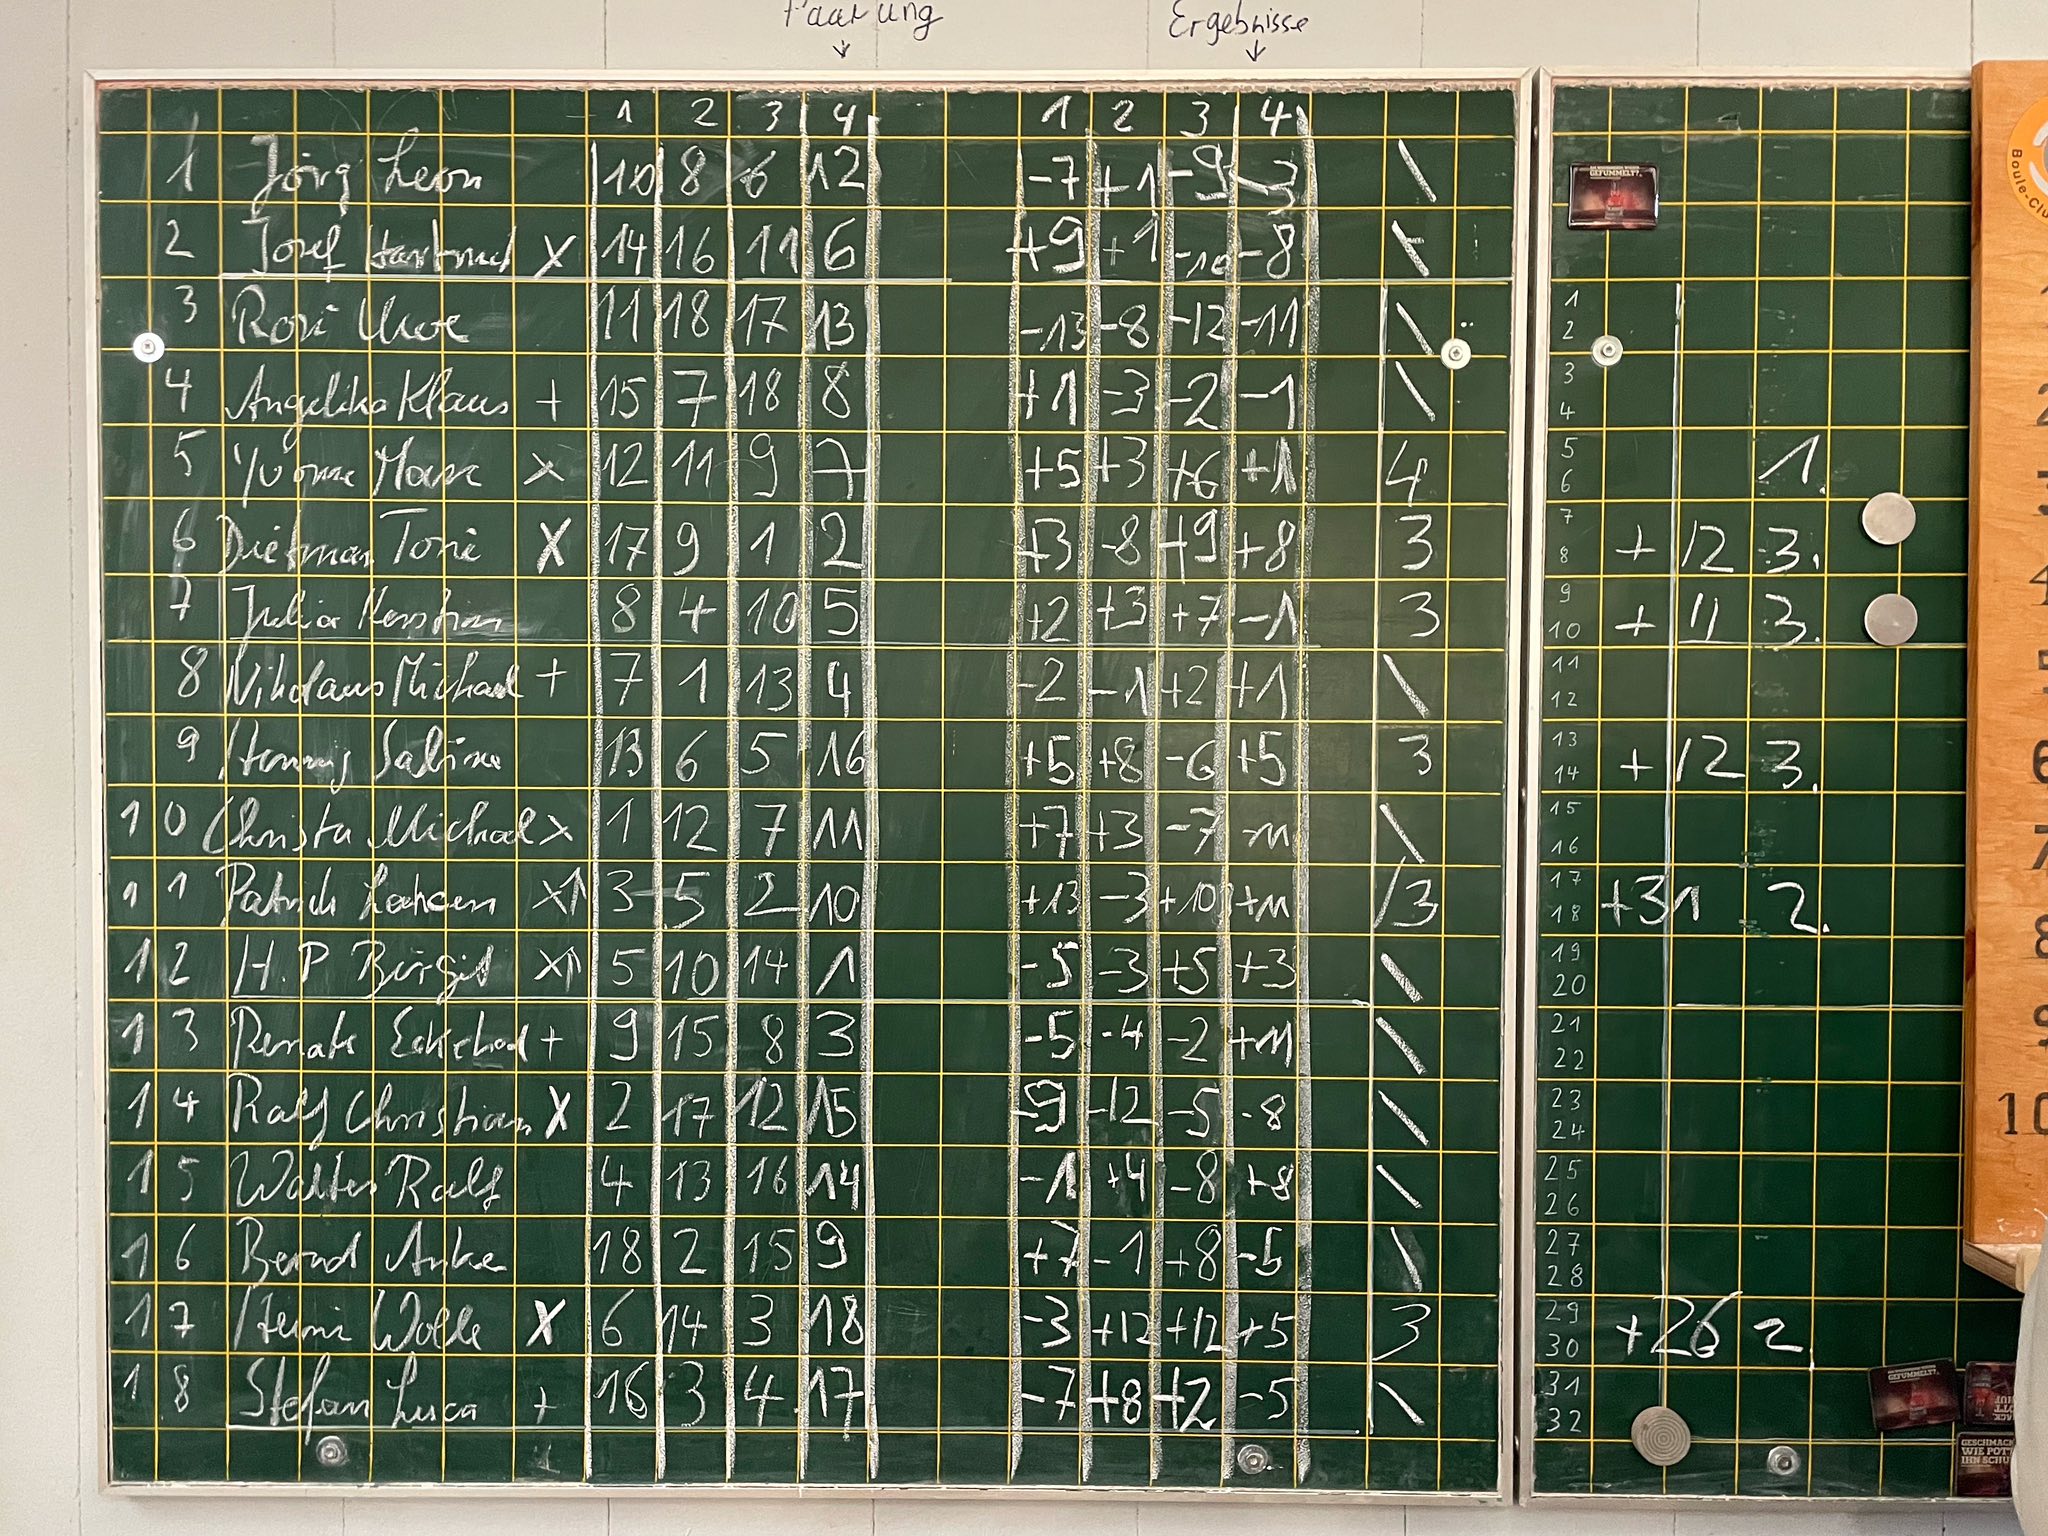 Paarung Ergebnisse
1 2 3 4 1 2 3 4
1 Jörg Leon 10 8 6 12 -7 +1 -9 -3 \
2 Josef Hartmut X 14 16 11 6 +9 +1 -10 -8 \
3 Rosi Uwe 11 18 17 13 -13 -8 -12 -11 \
4 Angelika Klaus + 15 7 18 8 +1 -3 -2 -1 \
5 Yvonne X 12 11 9 7 +5 +3 +6 +1 4 1.
6 Dietmar Toni X 17 9 1 2 +3 -8 +9 +8 3 +12 3.
7 Julia Kerstin 8 4 10 5 +2 +3 +7 -1 3 +11 3.
8 Nikolaus Michael + 7 1 13 4 -2 -1 +2 +1 \
9 Henny Sabine 13 6 5 16 +5 +8 -6 +5 3 +12 3.
10 Christa Michael X 1 12 7 11 +7 +3 -7 -11 \
11 Patrick X 3 5 2 10 +13 -3 +10 +11 3 +31 2.
12 H.P Birgit X 5 10 14 1 -5 -3 +5 +3 \
13 Renate Eckehard + 9 15 8 3 -5 -4 -2 +11 \
14 Ralf Christian X 2 17 12 15 -9 -12 -5 -8 \
15 Walter Ralf 4 13 16 14 -1 +4 -8 +8 \
16 Bernd Anke 18 2 15 9 +7 -1 +8 -5 \
17 Heinz Wolle X 6 14 3 18 -3 +12 +12 +5 3 +26 2.
18 Stefan Luca + 16 3 4 17 -7 +8 +2 -5 \
GEFUMMELT?
1
2
3
4
5
6
7
8
9
10
11
12
13
14
15
16
17
18
19
20
21
22
23
24
25
26
27
28
29
30
31
32
GEFUMMELT?
GESCHMACK
WIE POTT
IHN SCHU
Boule-Clu
2
3
4
5
6
7
8
9
10